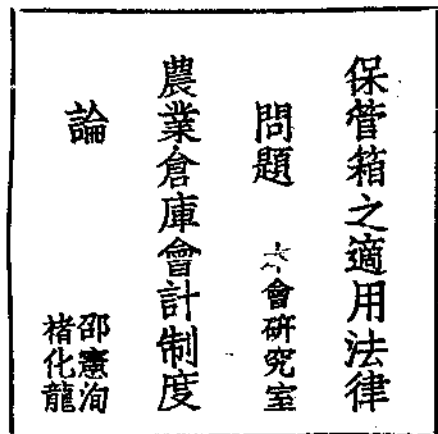 保管箱之適用法律
問題 本會研究室
農業倉庫會計制度
論 邵憲洵
褚化龍